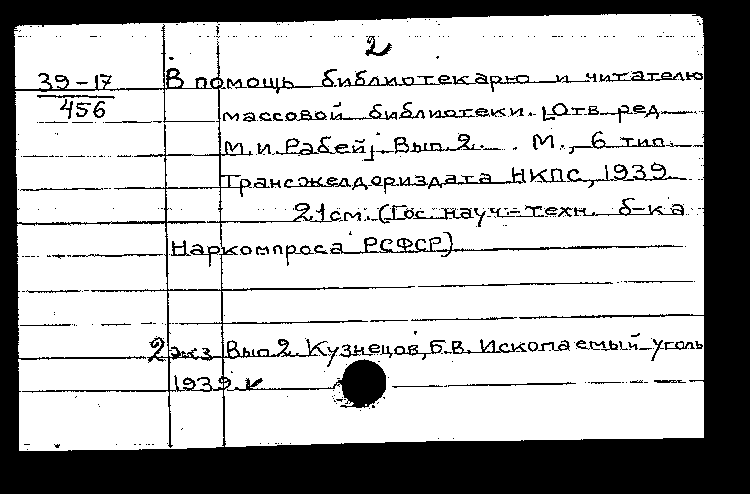 2
39-17
456
В помощь библиотекарю и читателю
массовой библиотеки. [Отв ред.
М.И. Рабей]. Вып. 2. М., 6 тип.
Трансжелдориздата НКПС, 1939
21 см. (Гос. науч.-техн. б-ка
Наркомпроса РСФСР)
2 экз Вып 2. Кузнецов, Б.В. Ископаемый уголь
1939. ✓